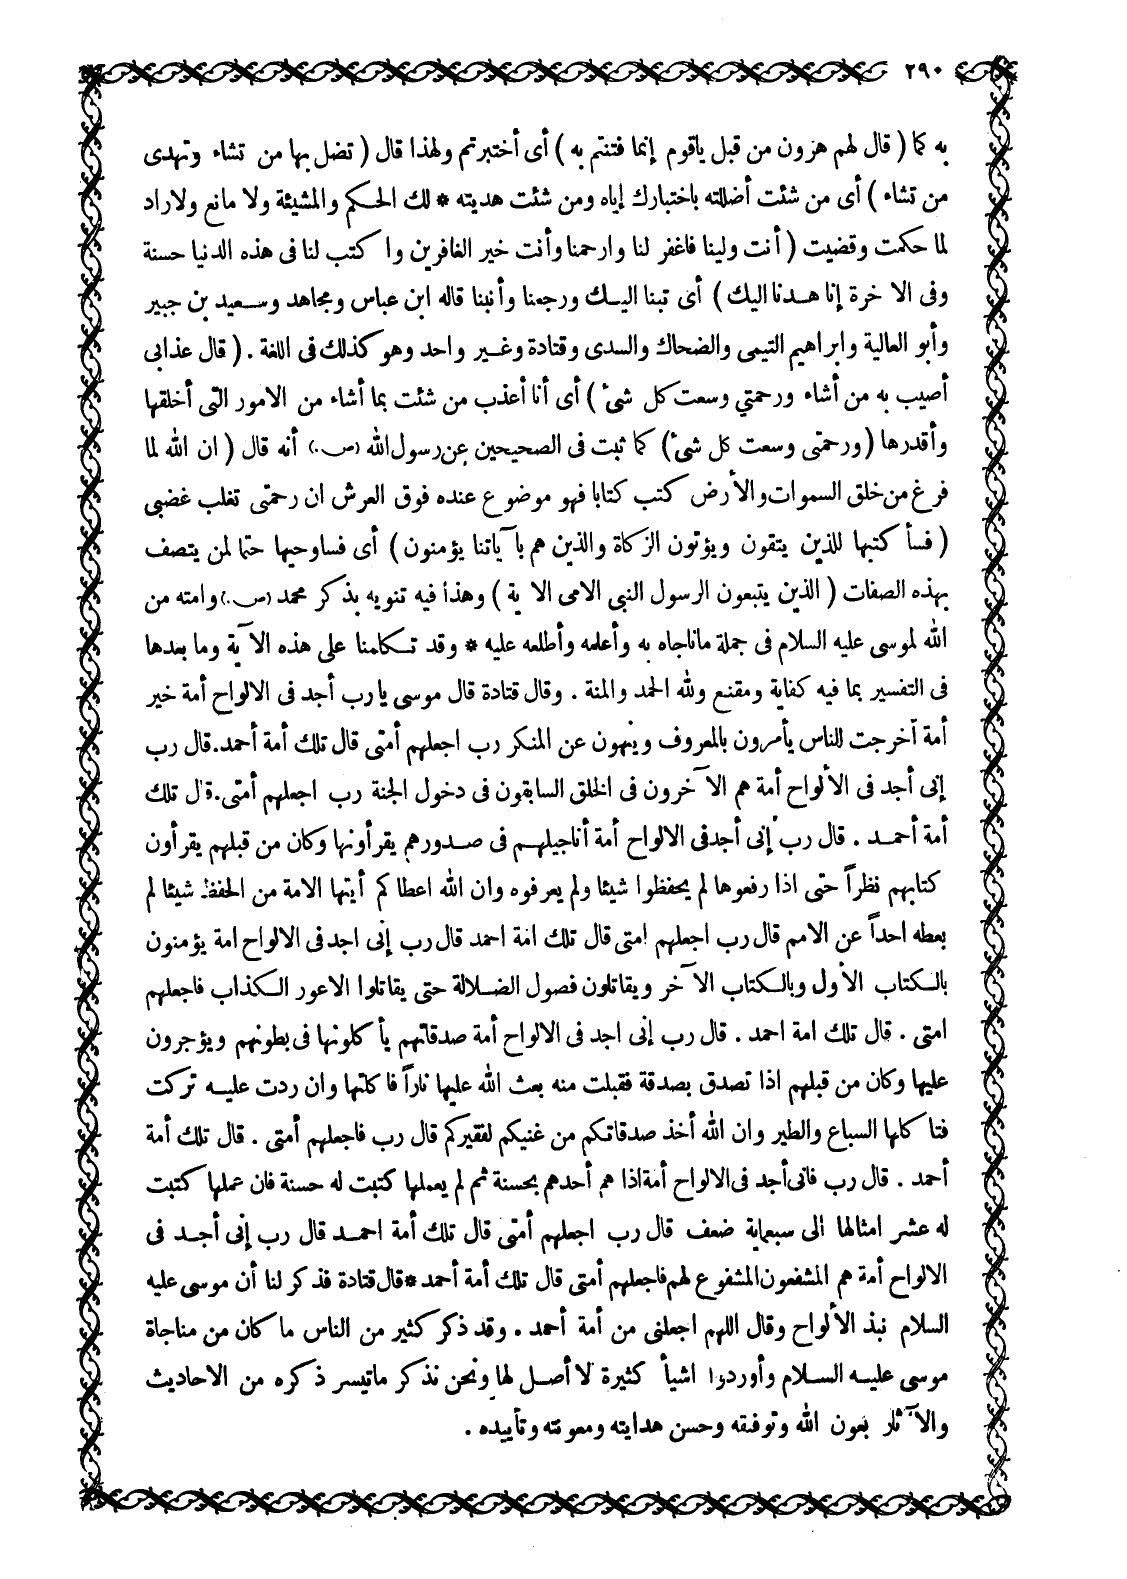 ٢٩٠
به كما ( قال لهم هرون من قبل ياقوم إنما فتنتم به ) أى أختبرتم ولهذا قال ( تضل بها من تشاء وتهدى
من تشاء ) أى من شئت أضللته باختبارك إياه ومن شئت هديته * لك الحكم والمشيئة ولا مانع ولاراد
لما حكمت وقضيت ( أنت ولينا فاغفر لنا وارحمنا وأنت خير الغافرين وا كتب لنا فى هذه الدنيا حسنة
وفى الا خرة إنا هدنا اليك ) أى تبنا اليك ورجعنا وأنبنا قاله ابن عباس ومجاهد وسعيد بن جبير
وأبو العالية وابراهيم التيمى والضحاك والسدى وقتادة وغير واحد وهو كذلك فى اللغة . ( قال عذابى
أصيب به من أشاء ورحمتي وسعت كل شىء ) أى أنا أعذب من شئت بما أشاء من الامور التى أخلقها
وأقدرها ( ورحمتى وسعت كل شىء ) كما ثبت فى الصحيحين عن رسول الله (ص.) أنه قال ( ان الله لما
فرغ من خلق السموات والأرض كتب كتابا فهو موضوع عنده فوق العرش ان رحمتى تغلب غضبى
( فسأ كتبها للذين يتقون ويؤتون الزكاة والذين هم بآ ياتنا يؤمنون ) أى فساوحيها حتما لمن يتصف
بهذه الصفات ( الذين يتبعون الرسول النبي الامى الا ية ) وهذا فيه تنويه بذكر محمد (ص.) وامته من
الله لموسى عليه السلام فى جملة ماناجاه به وأعلمه وأطلعه عليه * وقد تكلمنا على هذه الآ ية وما بعدها
فى التفسير بما فيه كفاية ومقنع ولله الحمد والمنة . وقال قتادة قال موسى يارب أجد فى الالواح أمة خير
أمة أخرجت للناس يأمرون بالمعروف وينهون عن المنكر رب اجعلهم أمتى قال تلك أمة أحمد. قال رب
إنى أجد فى الألواح أمة هم الآ خرون فى الخلق السابقون فى دخول الجنة رب اجعلهم أمتى. قال تلك
أمة أحمد . قال رب إنى أجد فى الالواح أمة أناجيلهم فى صدورهم يقرأونها وكان من قبلهم يقرأون
كتابهم نظراً حتى اذا رفعوها لم يحفظوا شيئا ولم يعرفوه وان الله اعطا كم أيتها الامة من الحفظ شيئا لم
يعطه احداً عن الامم قال رب اجعلهم امتى قال تلك امة احمد قال رب إنى اجد فى الالواح امة يؤمنون
بالكتاب الأول وبالكتاب الآ خر ويقاتلون فصول الضلالة حتى يقاتلوا الاعور الكذاب فاجعلهم
امتى . قال تلك امة احمد . قال رب إنى اجد فى الالواح أمة صدقاتهم يأ كلونها فى بطونهم ويؤجرون
عليها وكان من قبلهم اذا تصدق بصدقة فقبلت منه بعث الله عليها ناراً فا كلتها وان ردت عليه تركت
فتا كلها السباع والطير وان الله أخذ صدقاتكم من غنيكم لفقيركم قال رب فاجعلهم أمتى . قال تلك أمة
أحمد . قال رب فانى أجد فى الالواح أمة اذا هم أحدهم بحسنة ثم لم يعملها كتبت له حسنة فان عملها كتبت
له عشر امثالها الى سبعماية ضعف قال رب اجعلهم أمتى قال تلك أمة احمد قال رب إنى أجد فى
الالواح أمة هم المشفعون المشفوع لهم فاجعلهم أمتى قال تلك أمة أحمد * قال قتادة فذكر لنا أن موسى عليه
السلام نبذ الألواح وقال اللهم اجعلنى من أمة أحمد . وقد ذكر كثير من الناس ما كان من مناجاة
موسى عليه السلام وأوردوا اشيأ كثيرة لا أصل لها ونحن نذكر ماتيسر ذكره من الاحاديث
والآ ثار بعون الله وتوفيقه وحسن هدايته ومعونته وتأييده .